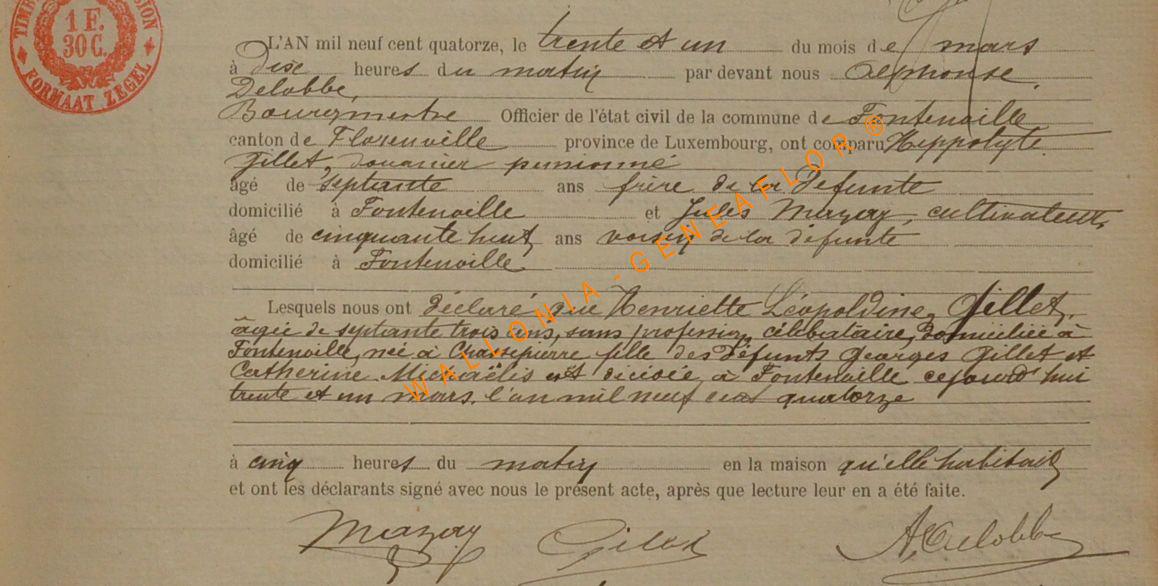 TIMB
SION
1 F.
30 C.
FORMAAT ZEGEL
L'AN mil neuf cent quatorze, le trente et un du mois de mars
à dix heures du matin par devant nous Alphonse
Delobbe,
Bourgmestre Officier de l'état civil de la commune de Fontenoille
canton de Florenville province de Luxembourg, ont comparu Hippolyte
Gillet, douanier pensionné
âgé de septante ans frère de la défunte
domicilié à Fontenoille et Jules Mazay, cultivateur,
âgé de cinquante huit ans voisin de la défunte
domicilié à Fontenoille
Lesquels nous ont déclaré que Henriette Léopoldine Gillet,
âgée de septante trois ans, sans profession, célibataire, domiciliée à
Fontenoille, née à Chassepierre fille des défunts Georges Gillet et
Catherine Michaëlis est décédée à Fontenoille cejourd'hui
trente et un mars, l'an mil neuf cent quatorze
à cinq heures du matin en la maison qu'elle habitait
et ont les déclarants signé avec nous le présent acte, après que lecture leur en a été faite.
Mazay Gillet A. Delobbe
WALLONIA - GENEAFLOR ®